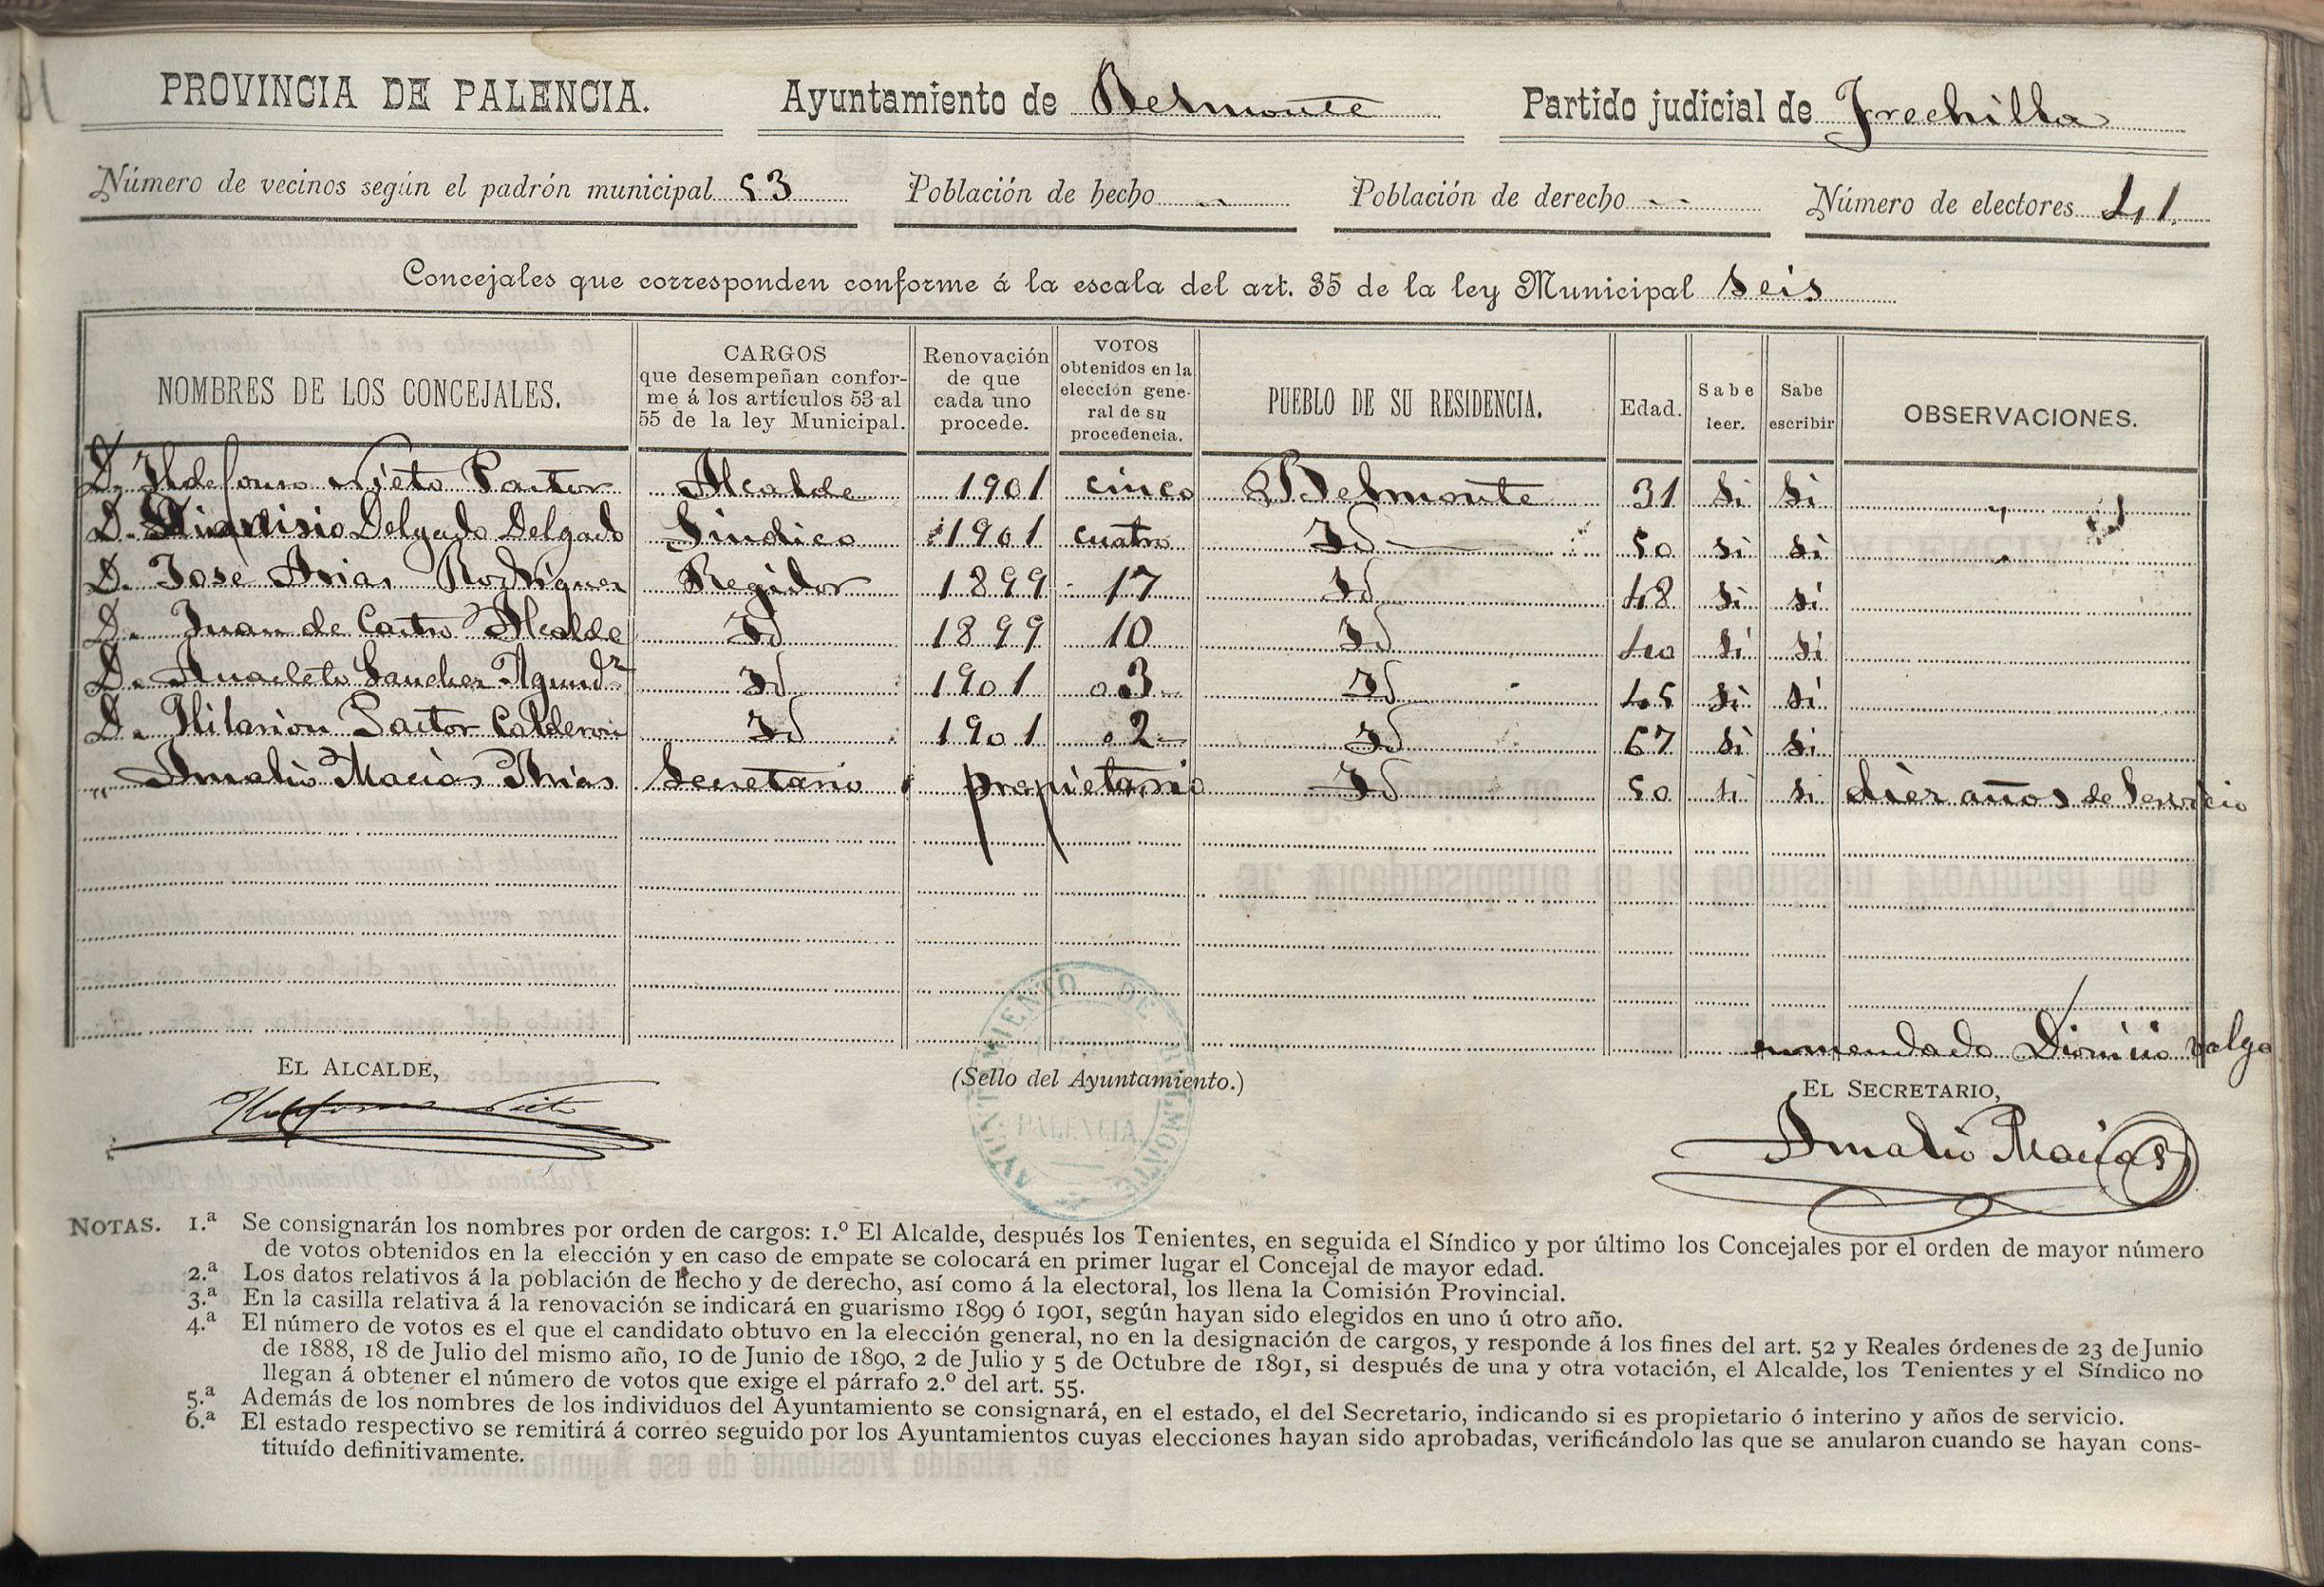 PROVINCIA DE PALENCIA. Ayuntamiento de Belmonte Partido judicial de Frechilla
Número de vecinos según el padrón municipal 53 Población de hecho Población de derecho Número de electores 41.
Concejales que corresponden conforme á la escala del art. 35 de la ley Municipal Seis
NOMBRES DE LOS CONCEJALES.
CARGOS
que desempeñan confor-
me á los artículos 53 al
55 de la ley Municipal.
Renovación
de que
cada uno
procede.
VOTOS
obtenidos en la
elección gene-
ral de su
procedencia.
PUEBLO DE SU RESIDENCIA.
Edad.
Sabe
leer.
Sabe
escribir
OBSERVACIONES.
D. Ildefonso Nieto Pastor Alcalde 1901 cinco Belmonte 31 Si Si "
D. Dionisio Delgado Delgado Sindico 1901 cuatro Id 50 Si Si "
D. José Arias Rodriguez Regidor 1899 17 Id 48 Si Si
D. Juan de Castro Alcalde Id 1899 10 Id 40 Si Si
D. Anacleto Sanchez Agundz Id 1901 03 Id 45 Si Si
D. Hilarion Pastor Calderon Id 1901 02 Id 67 Si Si
" Amalio Macias Arias Secretario propietario Id 50 si si diez años de Servicio
enmendado Dionisio valga
EL ALCALDE,
(Sello del Ayuntamiento.)
EL SECRETARIO,
Ildefonso Nieto
AYUNTAMIENTO DE BELMONTE
PALENCIA
Amalio Macias
NOTAS. 1.ª Se consignarán los nombres por orden de cargos: 1.º El Alcalde, después los Tenientes, en seguida el Síndico y por último los Concejales por el orden de mayor número
de votos obtenidos en la elección y en caso de empate se colocará en primer lugar el Concejal de mayor edad.
2.ª Los datos relativos á la población de hecho y de derecho, así como á la electoral, los llena la Comisión Provincial.
3.ª En la casilla relativa á la renovación se indicará en guarismo 1899 ó 1901, según hayan sido elegidos en uno ú otro año.
4.ª El número de votos es el que el candidato obtuvo en la elección general, no en la designación de cargos, y responde á los fines del art. 52 y Reales órdenes de 23 de Junio
de 1888, 18 de Julio del mismo año, 10 de Junio de 1890, 2 de Julio y 5 de Octubre de 1891, si después de una y otra votación, el Alcalde, los Tenientes y el Síndico no
llegan á obtener el número de votos que exige el párrafo 2.º del art. 55.
5.ª Además de los nombres de los individuos del Ayuntamiento se consignará, en el estado, el del Secretario, indicando si es propietario ó interino y años de servicio.
6.ª El estado respectivo se remitirá á correo seguido por los Ayuntamientos cuyas elecciones hayan sido aprobadas, verificándolo las que se anularon cuando se hayan cons-
tituído definitivamente.